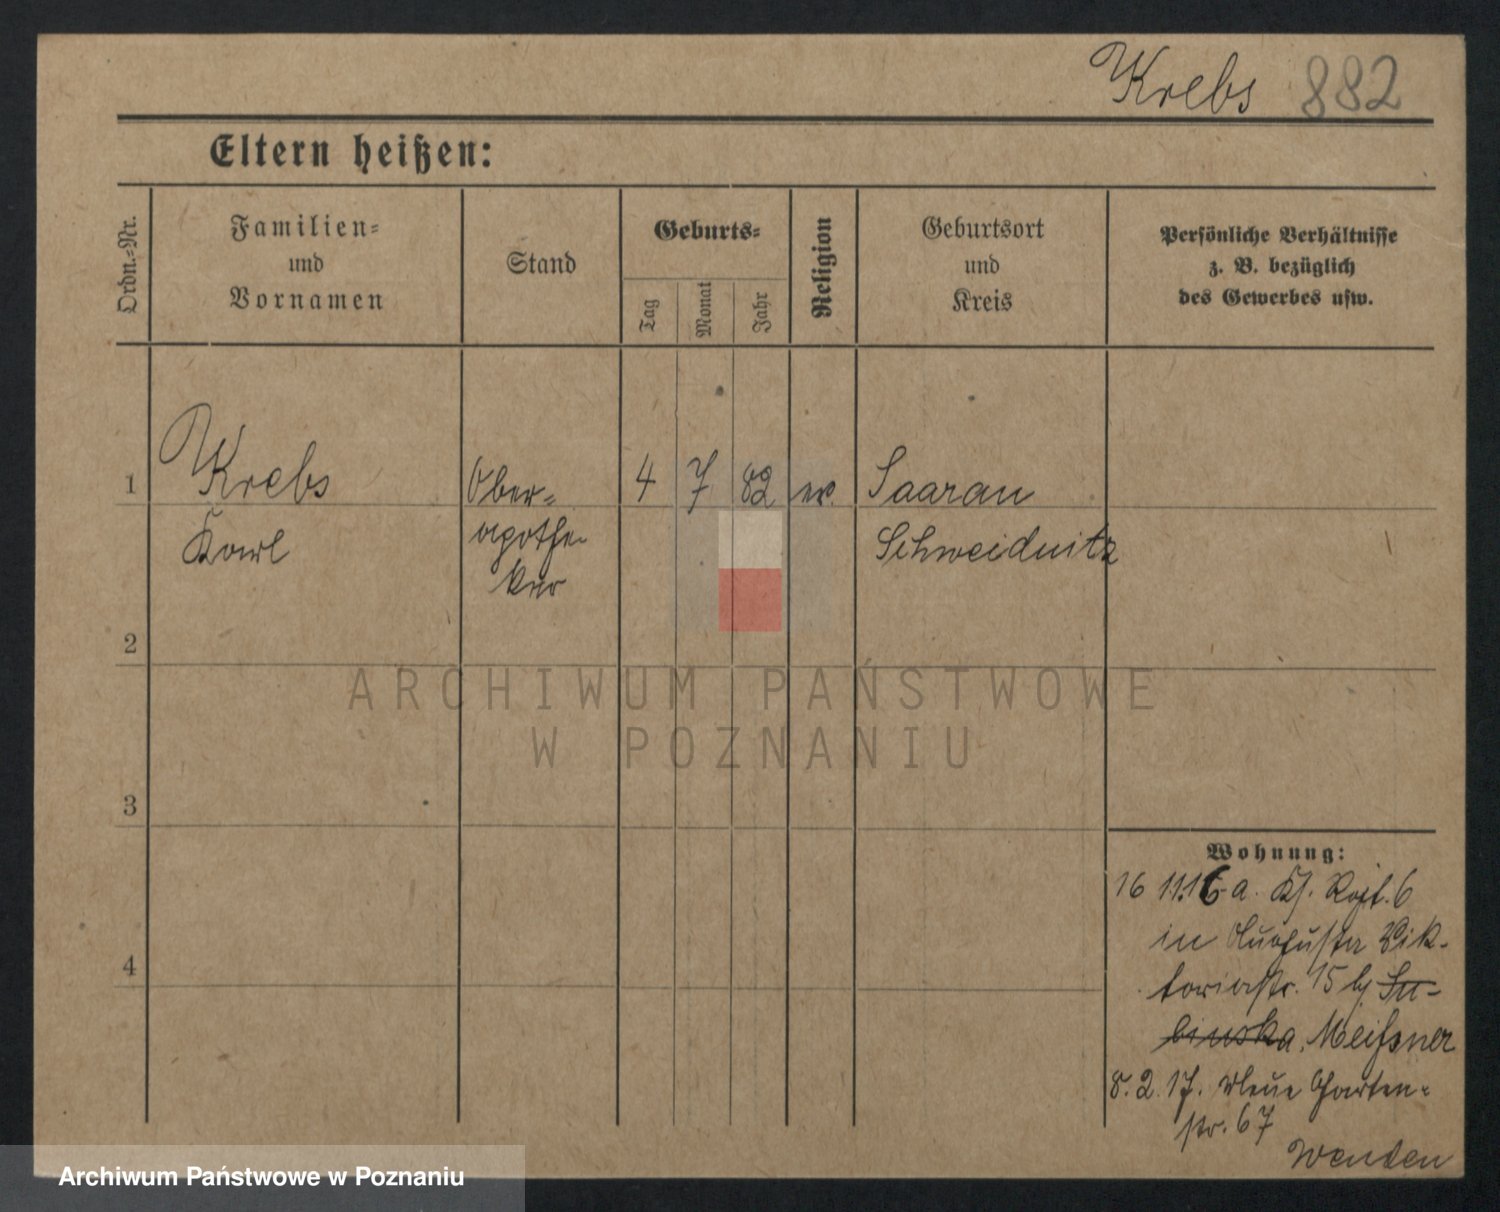 Krebs 882
Eltern heißen:
Ordn.=Nr.
Familien=
und
Vornamen
Stand
Geburts=
Tag
Monat
Jahr
Religion
Geburtsort
und
Kreis
Persönliche Verhältnisse
z. B. bezüglich
des Gewerbes usw.
1 Krebs Ober= 4 7 82 ev. Saarau
Karl apothe- Schweidnitz
ker
2
ARCHIWUM PAŃSTWOWE
W POZNANIU
3
Wohnung:
16 11.16 a. 6
in Augusta Vik-
4
toriastr. 15 b/ Su-
binska, Meissner
8. 2. 17. Neue Garten-
str. 67
Wenden
Archiwum Państwowe w Poznaniu